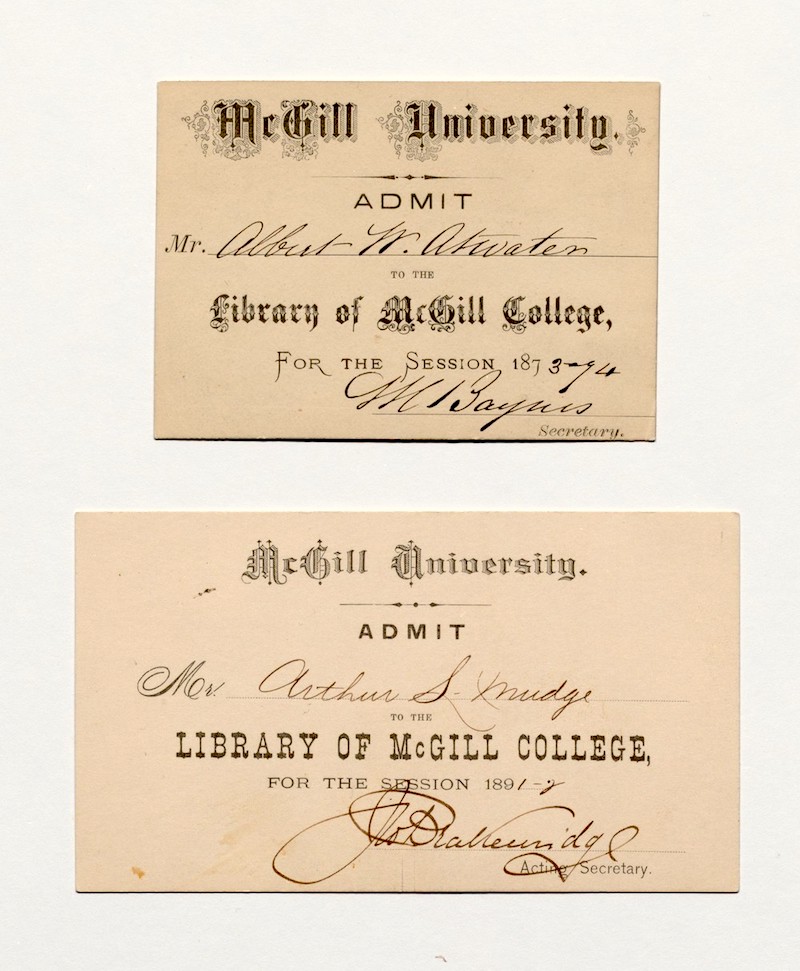 McGill University.
ADMIT
Mr. Albert W. Atwater
TO THE
Library of McGill College,
FOR THE SESSION 1873-74
Baynes
Secretary.
McGill University.
ADMIT
Mr. Arthur S. Mudge
TO THE
LIBRARY OF McGILL COLLEGE,
FOR THE SESSION 1891-2
Acting Secretary.